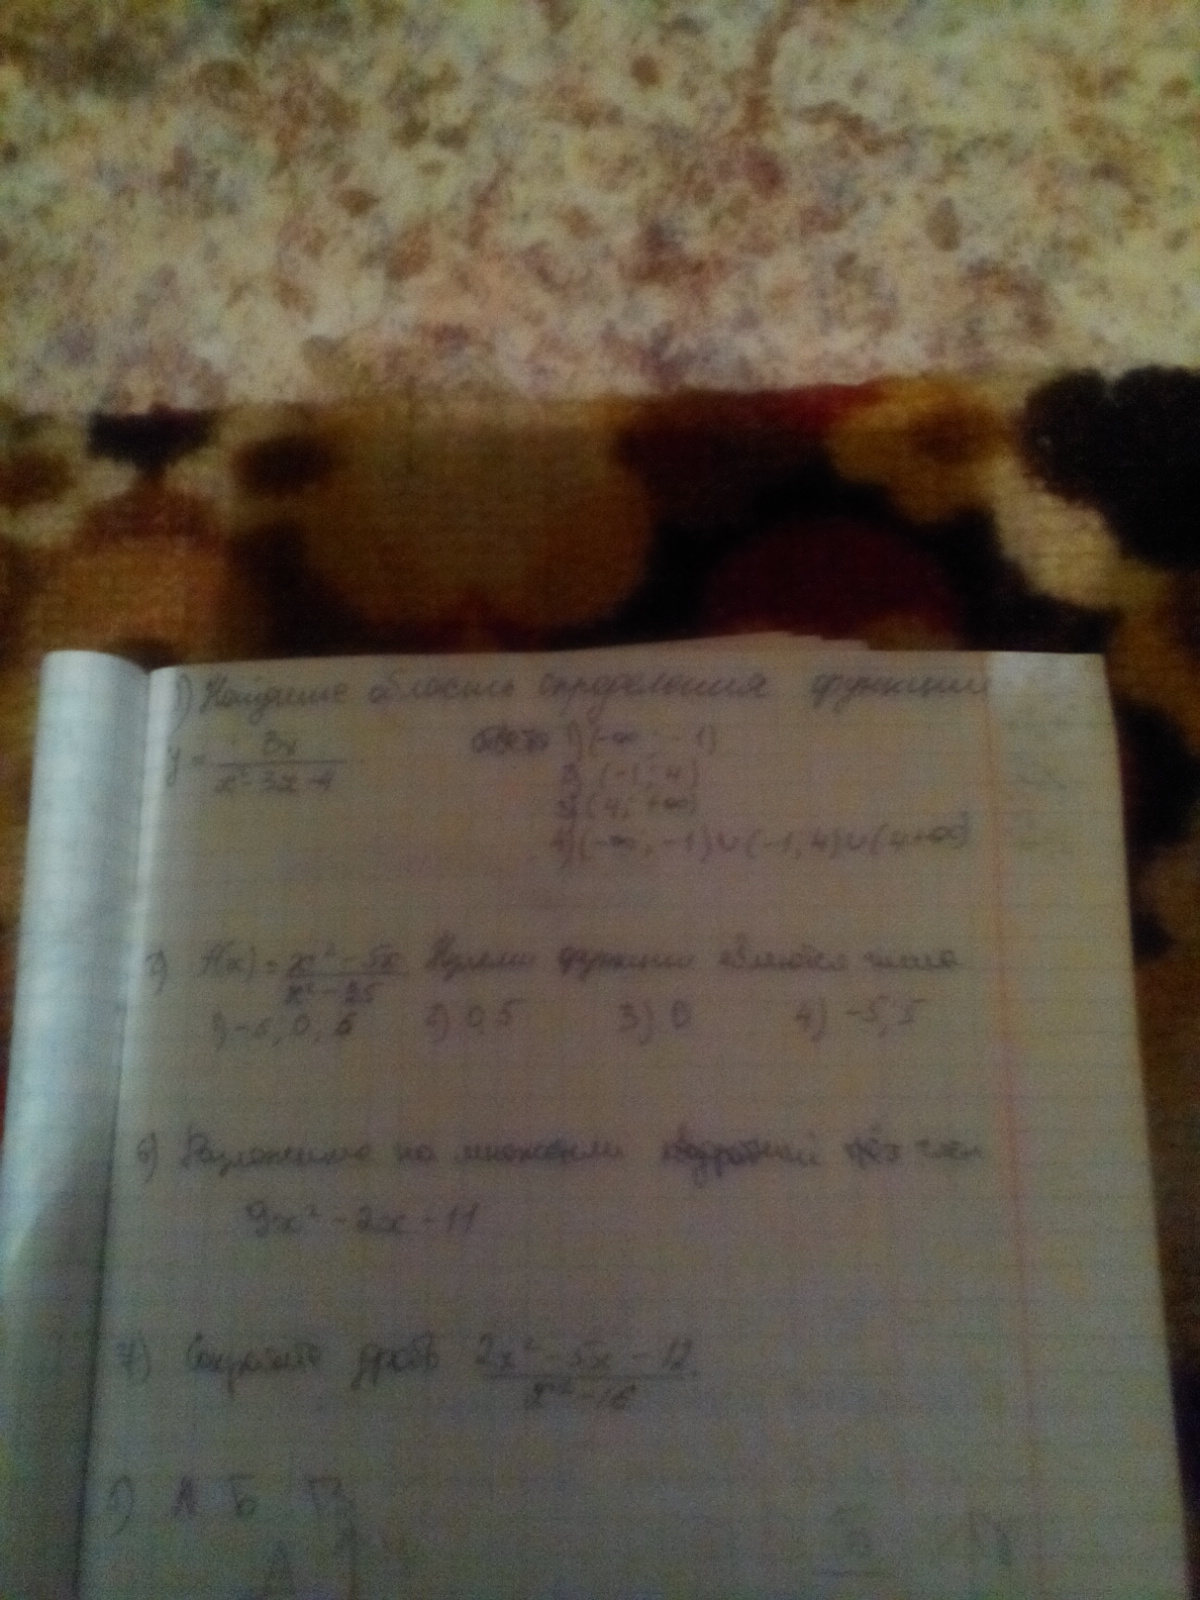 1) Найдите область определения функции
y = 3x / x² - 3x - 4 ответы 1) (-∞; -1)
2) (-1; 4)
3) (4; +∞)
4) (-∞; -1) ∪ (-1; 4) ∪ (4 +∞)
2) f(x) = x² - 5x / x² - 25 Нулями функции являются числа
1) -5, 0, 5 2) 0 5 3) 0 4) -5, 5
6) Разложите на множители квадратный трёх член
9x² - 2x - 11
7) Сократите дробь 2x² - 5x - 12 / x² - 16
А Б В